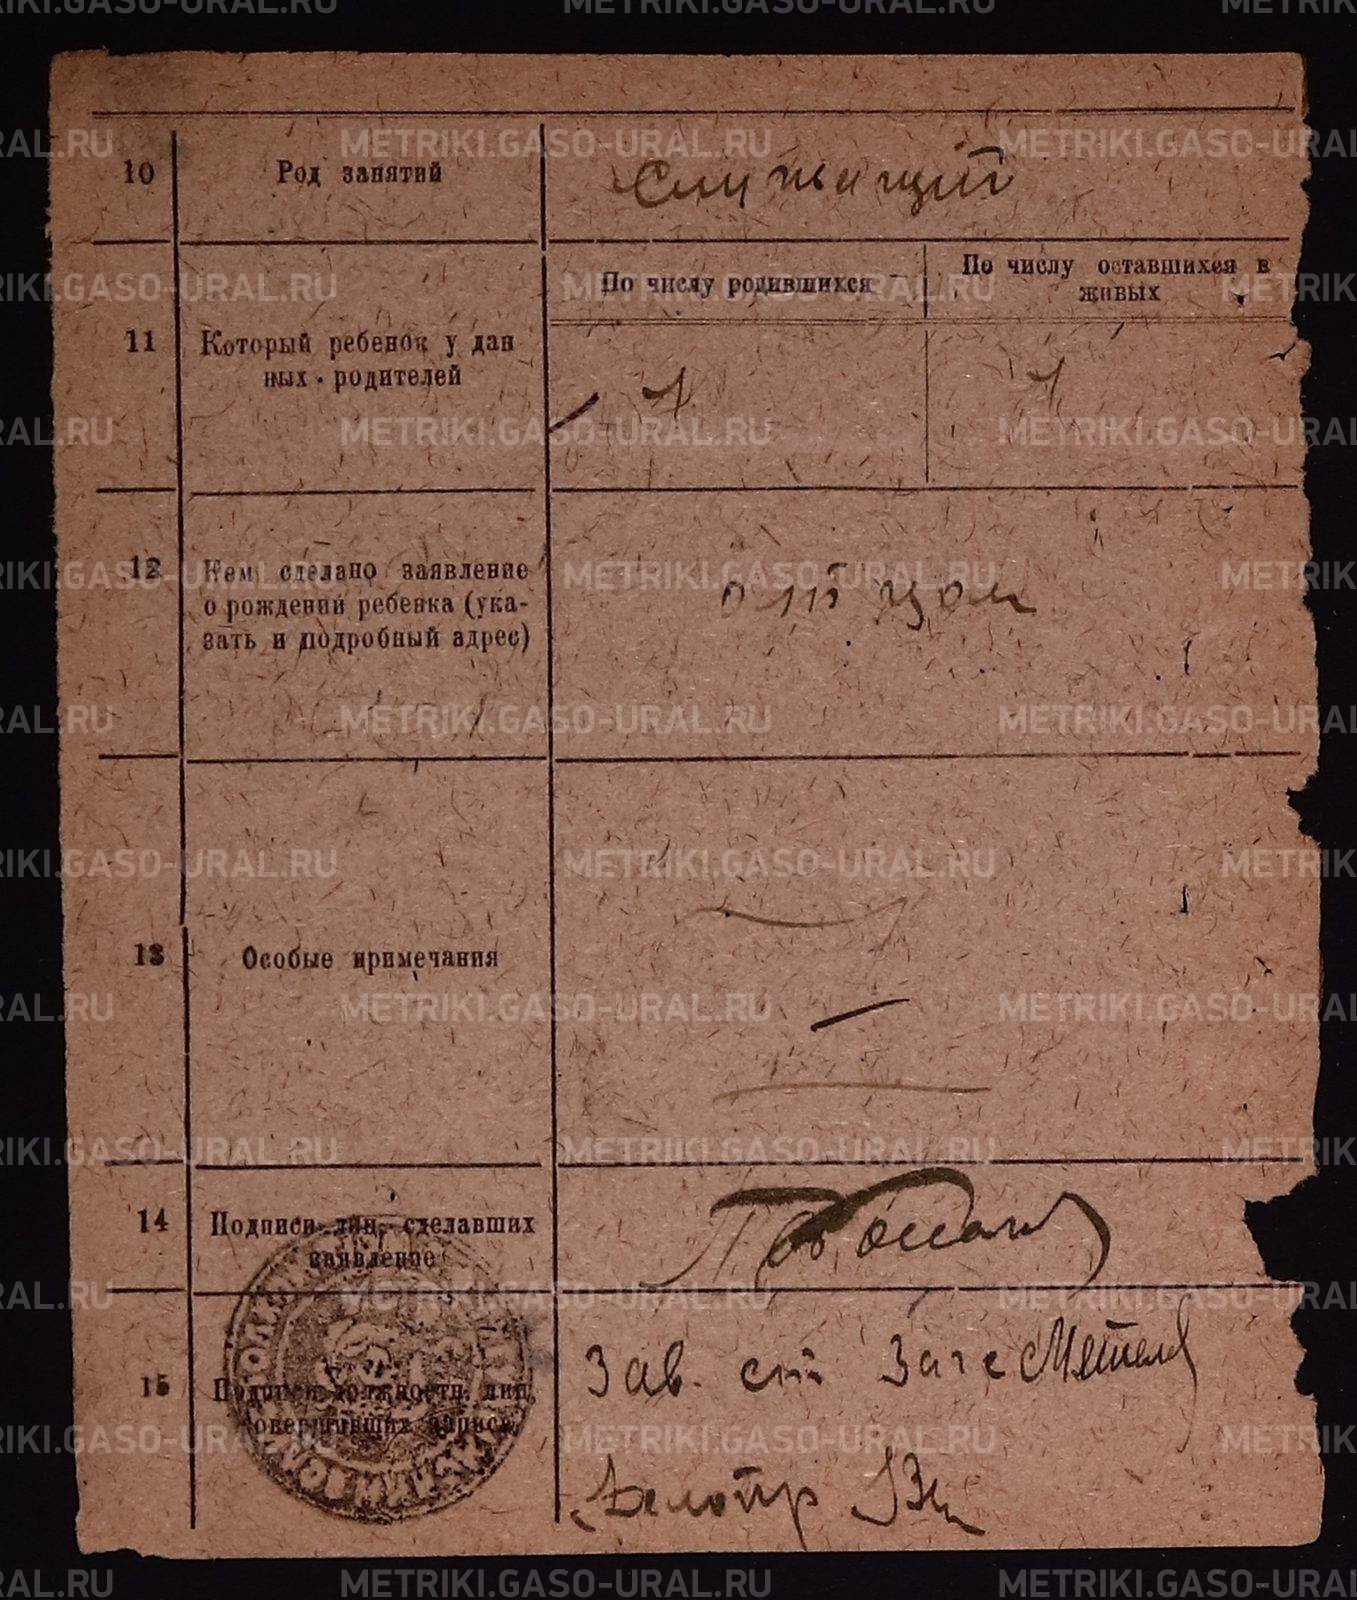 10
Род занятий
служащий
11
Который ребенок у дан
ных родителей
По числу родившихся
По числу оставшихся в
живых
12
Кем сделано заявление
о рождении ребенка (ука-
зать и подробный адрес)
отцом
13
Особые примечания
14
Подписи лиц, сделавших
заявление
15
Подписи должностн. лиц,
совершивших запись
Зав. ст Загс
Делопр
METRIKI.GASO-URAL.RU